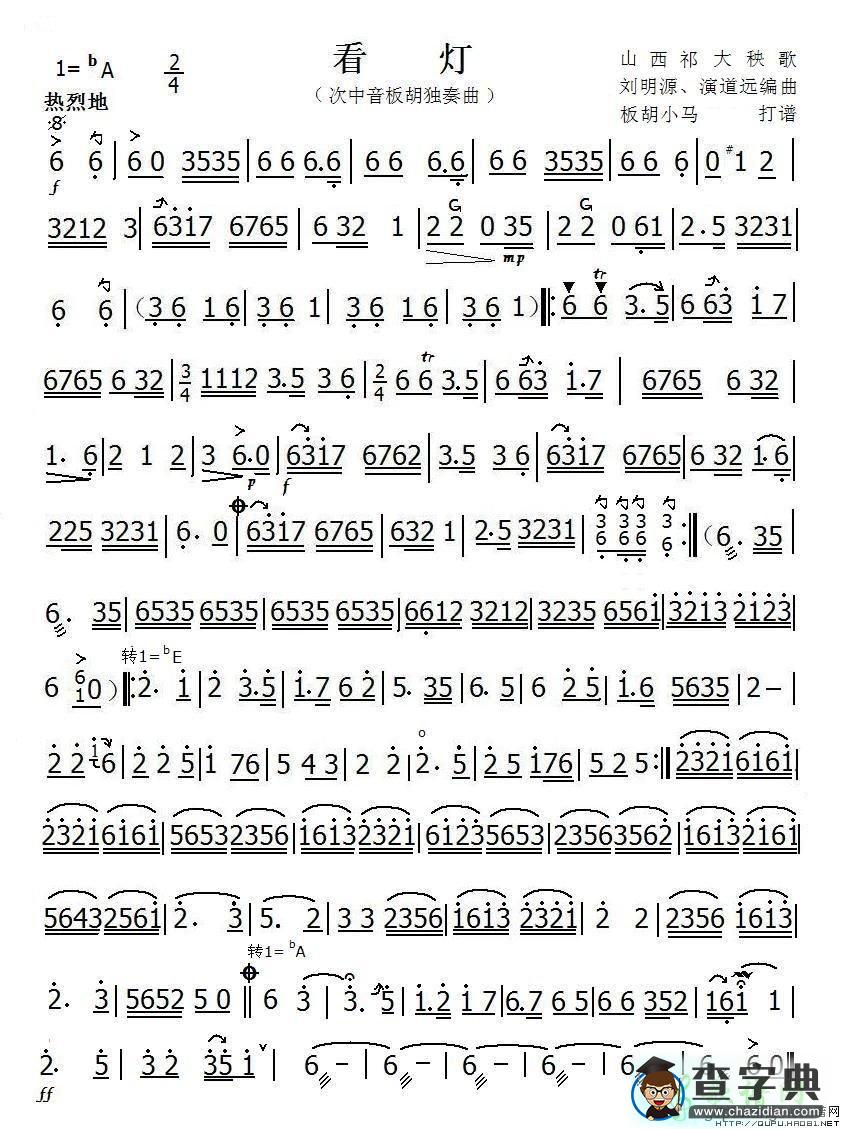 看 灯
1= ♭A 2/4
(次中音板胡独奏曲)
山西祁大秧歌
刘明源、演道远编曲
板胡小马 打谱
热烈地
8
f
6 6 | 6 0 3535 | 6 6 6.6 | 6 6 6.6 | 6 6 3535 | 6 6 6 6 | 0 #1 2 |
3212 3 | 6317 6765 | 6 32 1 | 2 2 0 35 | 2 2 0 61 | 2.5 3231 |
mp
6 6 | (3 6 1 6 | 3 6 1 | 3 6 1 6 | 3 6 1) |: 6 6 3.5 | 6 63 1 7 |
tr
6765 6 32 | 3/4 1112 3.5 3 6 | 2/4 6 6 3.5 | 6 63 1.7 | 6765 6 32 |
tr
1. 6 | 2 1 2 | 3 6.0 | 6317 6762 | 3.5 3 6 | 6317 6765 | 6 32 1.6 |
p f
225 3231 | 6. 0 | 6317 6765 | 632 1 | 2.5 3231 | 3 3 3 3 :| (6. 35 |
6 6 6 6
6. 35 | 6535 6535 | 6535 6535 | 6612 3212 | 3235 6561 | 3213 2123 |
转1=♭E
6 6 1 0) |: 2. 1 | 2 3.5 | 1.7 6 2 | 5. 35 | 6. 5 | 6 2 5 | 1.6 5635 | 2 – |
2 2 1 6 | 2 2 5 | 1 76 | 5 4 3 | 2 2 | 2. 5 | 2 5 176 | 5 2 5 :| 23216161 |
23216161 | 56532356 | 16132321 | 61235653 | 23563562 | 16132161 |
56432561 | 2. 3 | 5. 2 | 3 3 2356 | 1613 2321 | 2 2 | 2356 1613 |
转1=♭A
2. 3 | 5652 5 0 || 6 3 | 3. 5 | 1.2 1 7 | 6.7 6 5 | 6 6 352 | 161 1 |
2. 5 | 3 2 35 1 | 6 – | 6 – | 6 – | 6 6 | 6 0 ||
ff
查字典
www.chazidian.com
http://QUPU.HAO81.NET